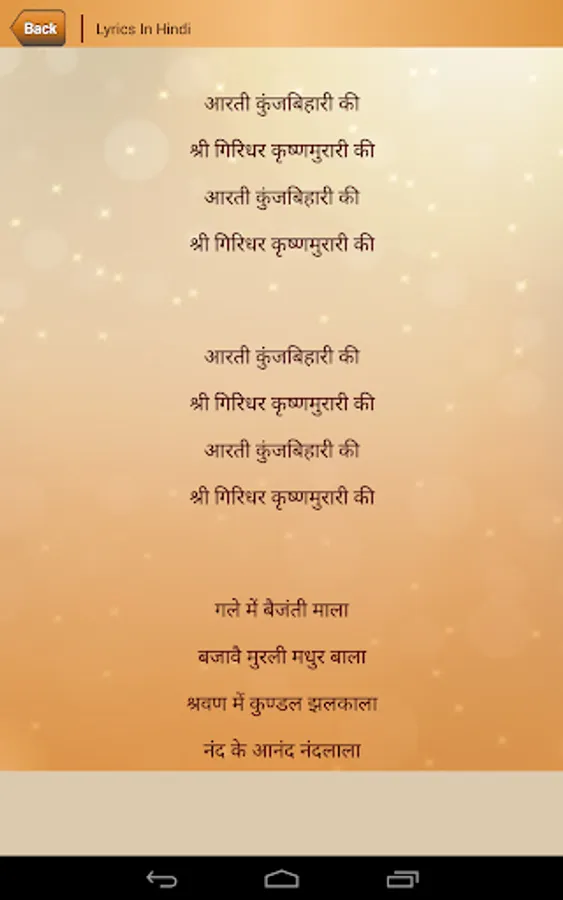 Back
Lyrics In Hindi
आरती कुंजबिहारी की
श्री गिरिधर कृष्णमुरारी की
आरती कुंजबिहारी की
श्री गिरिधर कृष्णमुरारी की
आरती कुंजबिहारी की
श्री गिरिधर कृष्णमुरारी की
आरती कुंजबिहारी की
श्री गिरिधर कृष्णमुरारी की
गले में बैजंती माला
बजावै मुरली मधुर बाला
श्रवण में कुण्डल झलकाला
नंद के आनंद नंदलाला